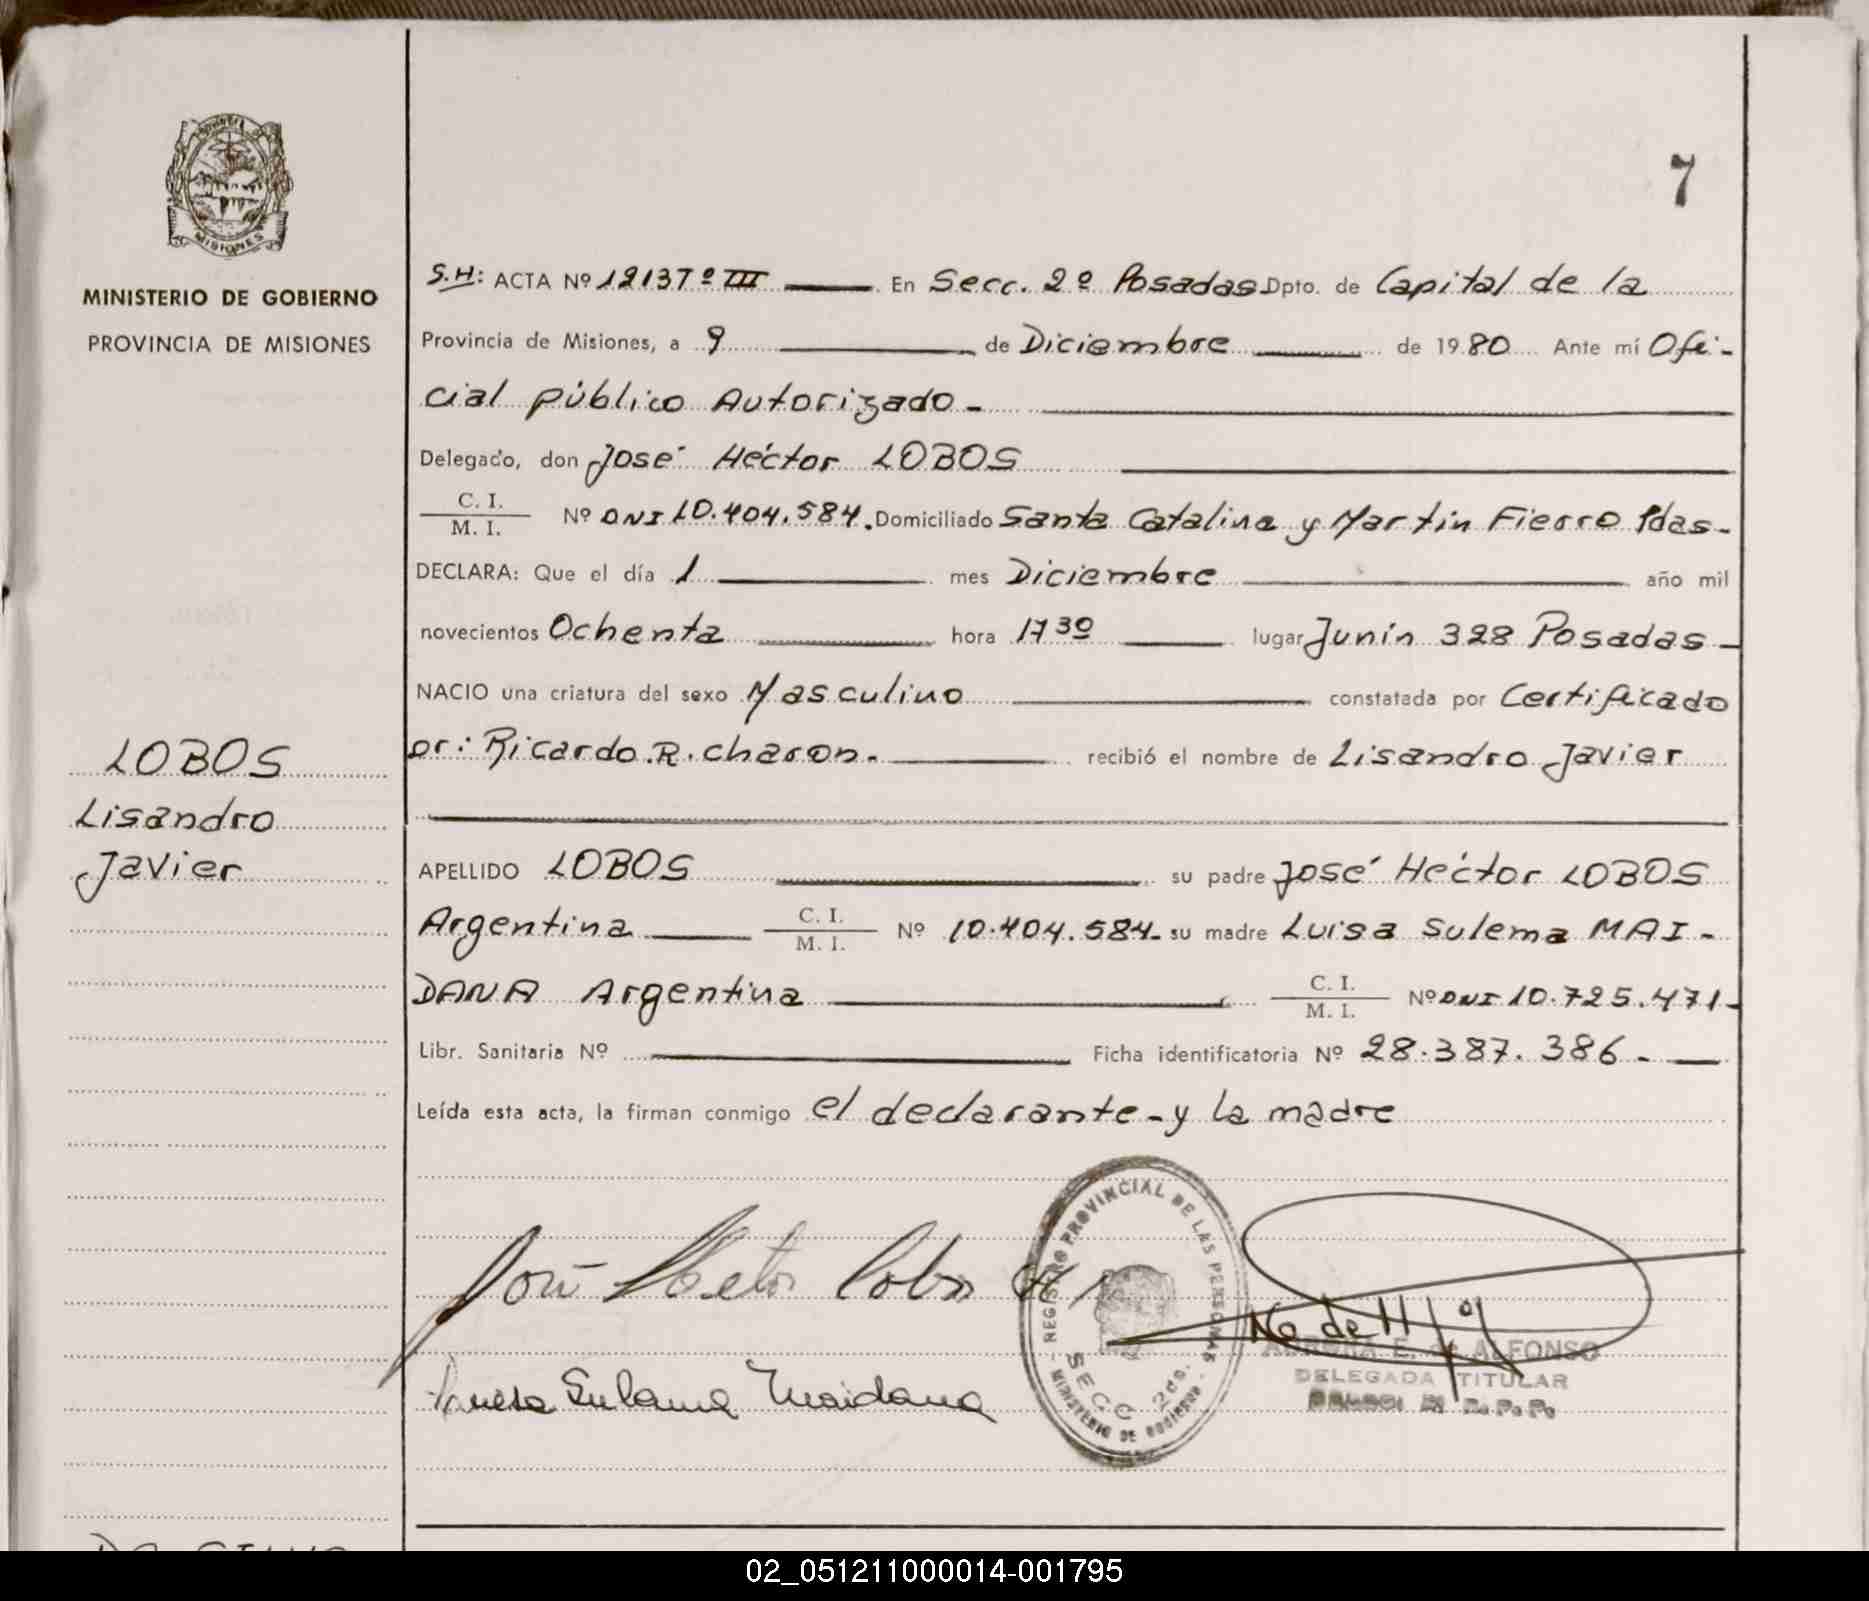 PROVINCIA DE
MISIONES
MINISTERIO DE GOBIERNO
PROVINCIA DE MISIONES
7
S.H: ACTA Nº 12137º III En Secc. 2º Posadas Dpto. de Capital de la
Provincia de Misiones, a 9 de Diciembre de 1980 Ante mí Ofi-
cial público Autorizado-
Delegado, don José Héctor LOBOS
C. I.
M. I. Nº DNI 10.404.584. Domiciliado Santa Catalina y Martin Fierro Pdas-
DECLARA: Que el día 1 mes Diciembre año mil
novecientos Ochenta hora 17 30 lugar Junín 328 Posadas-
NACIO una criatura del sexo Masculino constatada por Certificado
Dr: Ricardo.R.Charon. recibió el nombre de Lisandro Javier
LOBOS
Lisandro
Javier
APELLIDO LOBOS su padre José Héctor LOBOS
Argentina C. I. M. I. Nº 10.404.584- su madre Luisa Sulema MAI-
DANA Argentina C. I. M. I. Nº DNI 10.725.471-
Libr. Sanitaria Nº Ficha identificatoria Nº 28.387.386-
Leída esta acta, la firman conmigo el declarante-y la madre
REGISTRO PROVINCIAL DE LAS PERSONAS
SECC 2da.
MINISTERIO DE GOBIERNO
José Hector Lobos
Luisa Sulema Maidana
AURORA E. de ALFONSO
DELEGADA TITULAR
R. P. P.
02_051211000014-001795